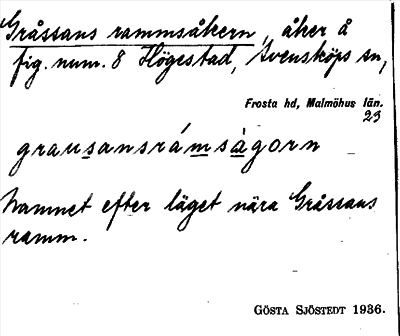 Gråssans rammsåkern, åker å
fig. num. 8 Högestad, Svensköps sn,
Frosta hd, Malmöhus län.
23
grausansrámsàgorn
Namnet efter läget nära Gråssans
ramm.
GÖSTA SJÖSTEDT 1936.